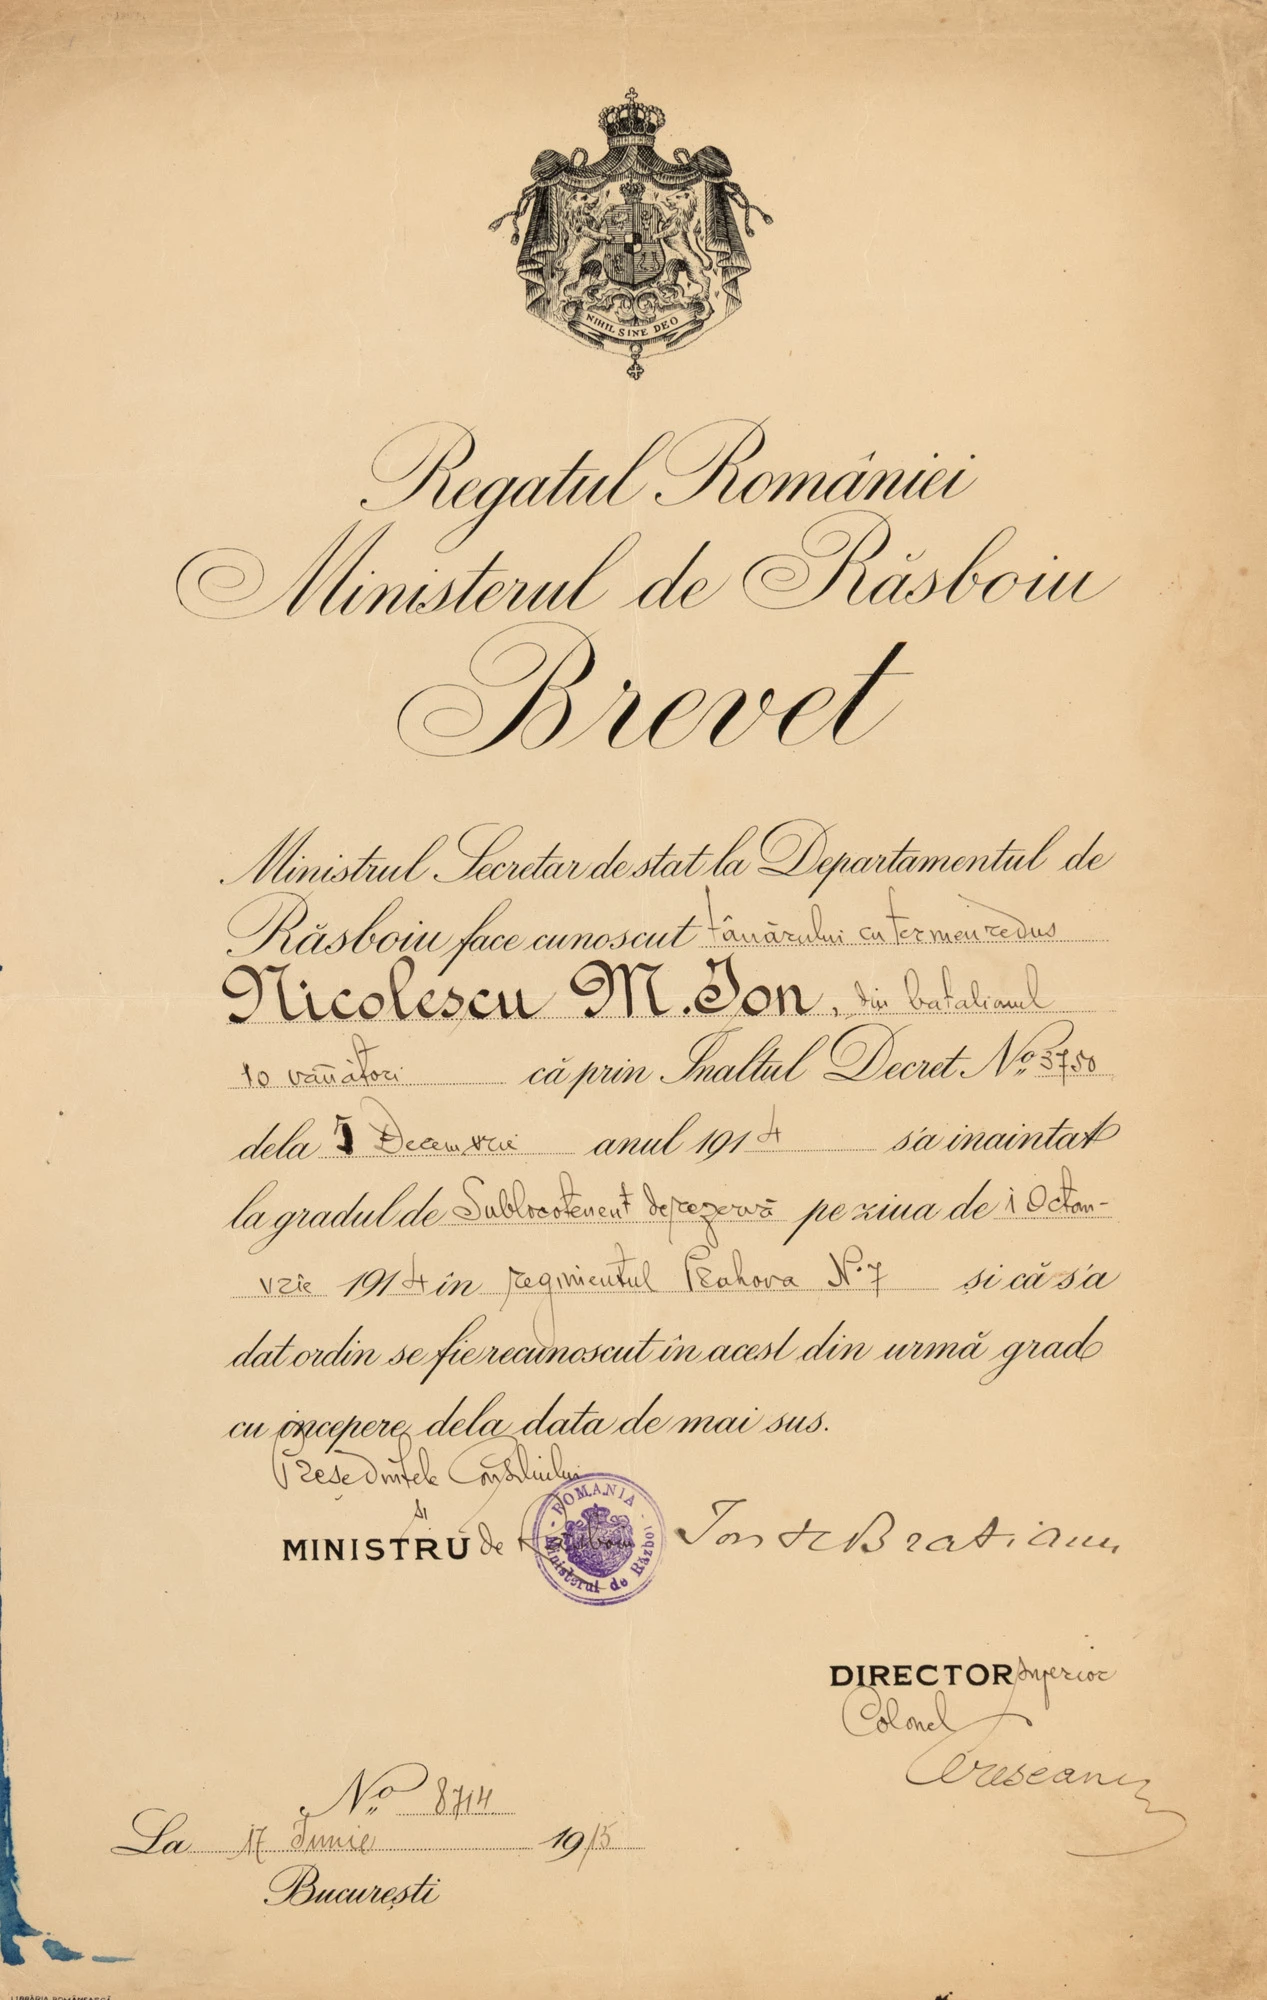 NIHIL SINE DEO
Regatul României
Ministerul de Răsboiu
Brevet
Ministrul Secretar de stat la Departamentul de
Răsboiu face cunoscut tânărului cu termen redus
Nicolescu M. Ion, din batalionul
10 vânători că prin Inaltul Decret No 3750
dela 5 Decemvrie anul 1914 s'a inaintat
la gradul de Sublocotenent de rezervă pe ziua de 1 Octom-
vrie 1914 în regimentul Prahova N. 7 și că s'a
dat ordin se fie recunoscut în acest din urmă grad
cu incepere dela data de mai sus.
Președintele Consiliului
și
MINISTRU de Răsboiu
ROMANIA
Ministerul de Război
Ion I C Bratianu
DIRECTOR Superior
Colonel
No 8714
La 17 Iunie 1915
București
LIBRĂRIA ROMÂNEASCĂ